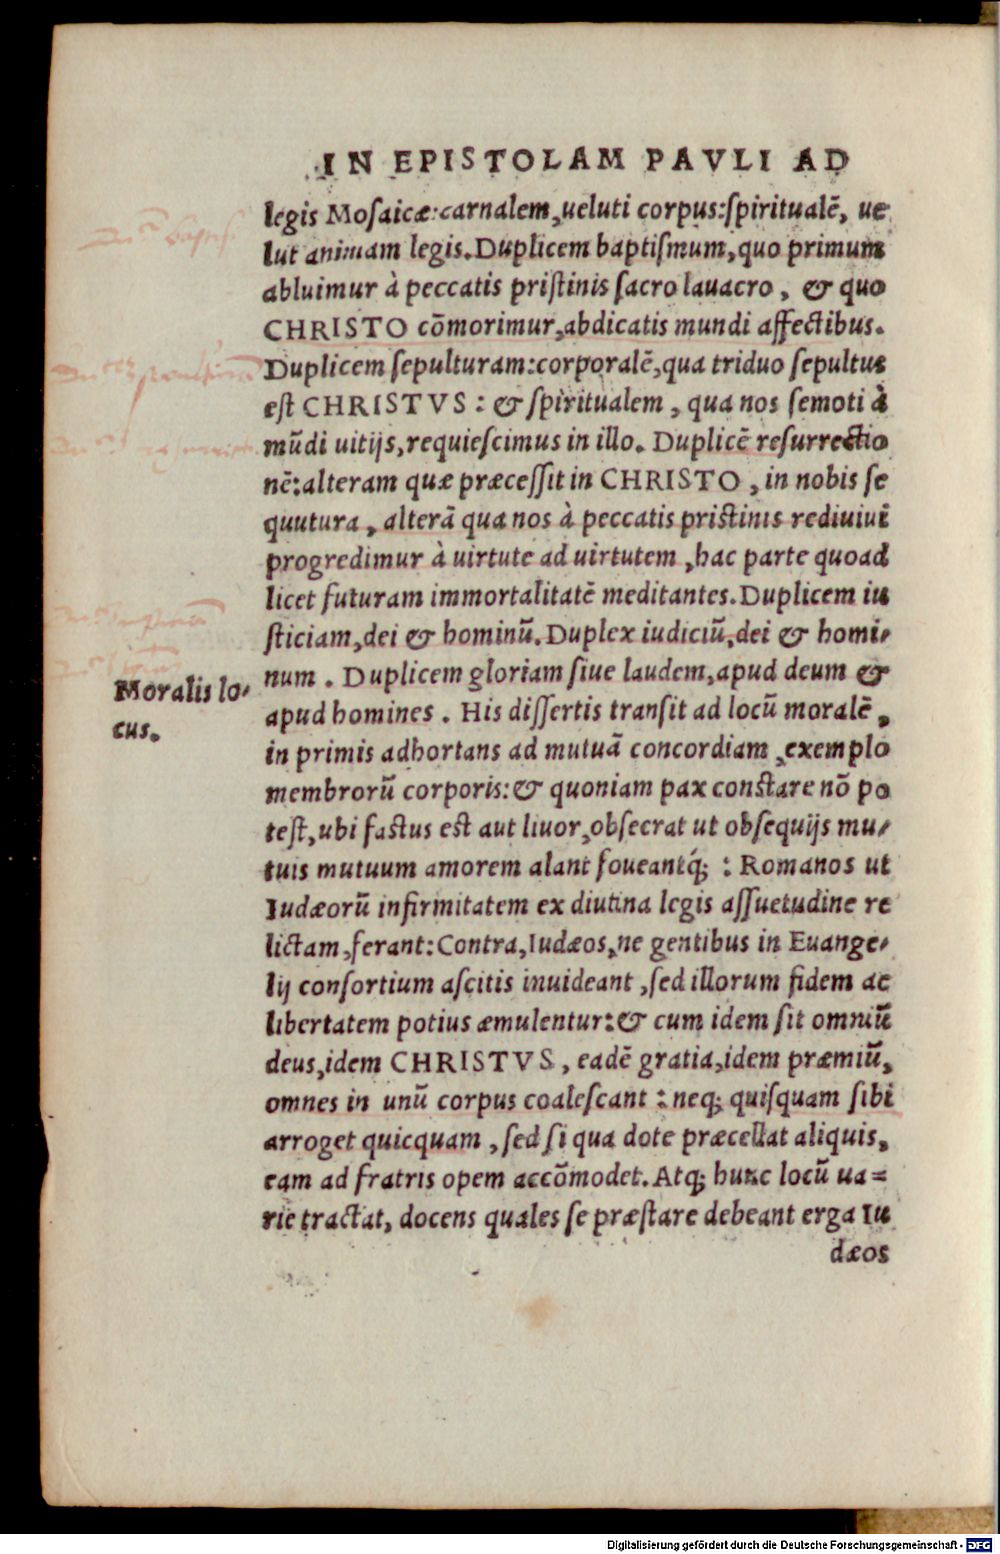 IN EPISTOLAM PAVLI AD
legis Mosaicæ: carnalem, ueluti corpus: spiritualē, ue
lut animam legis. Duplicem baptiſmum, quo primum
abluimur à peccatis priſtinis ſacro lauacro, & quo
CHRISTO cōmorimur, abdicatis mundi affectibus.
Duplicem ſepulturam: corporalē, qua triduo ſepultus
eſt CHRISTVS: & ſpiritualem, qua nos ſemoti à
mūdi uitijs, requieſcimus in illo. Duplicē reſurrectio
nē: alteram quæ præceſſit in CHRISTO, in nobis ſe
quutura, alterā qua nos à peccatis priſtinis rediuiui
progredimur à uirtute ad uirtutem, hac parte quoad
licet futuram immortalitatē meditantes. Duplicem iu
ſticiam, dei & hominū. Duplex iudiciū, dei & homi-
num. Duplicem gloriam ſiue laudem, apud deum &
apud homines. His diſſertis tranſit ad locū moralē,
in primis adhortans ad mutuā concordiam, exemplo
membrorū corporis: & quoniam pax conſtare nō po
teſt, ubi faſtus eſt aut liuor, obſecrat ut obſequijs mu-
tuis mutuum amorem alant foueantq́;: Romanos ut
Iudæorū infirmitatem ex diutina legis aſſuetudine re
lictam, ferant: Contra, Iudæos, ne gentibus in Euange-
lij conſortium aſcitis inuideant, ſed illorum fidem ac
libertatem potius æmulentur: & cum idem ſit omniū
deus, idem CHRISTVS, eadē gratia, idem præmiū,
omnes in unū corpus coaleſcant: neq; quiſquam ſibi
arroget quicquam, ſed ſi qua dote præcellat aliquis,
eam ad fratris opem accōmodet. Atq; hunc locū ua=
rie tractat, docens quales ſe præſtare debeant erga Iu
dæos
Moralis lo-
cus.
Digitalisierung gefördert durch die Deutsche Forschungsgemeinschaft - DFG